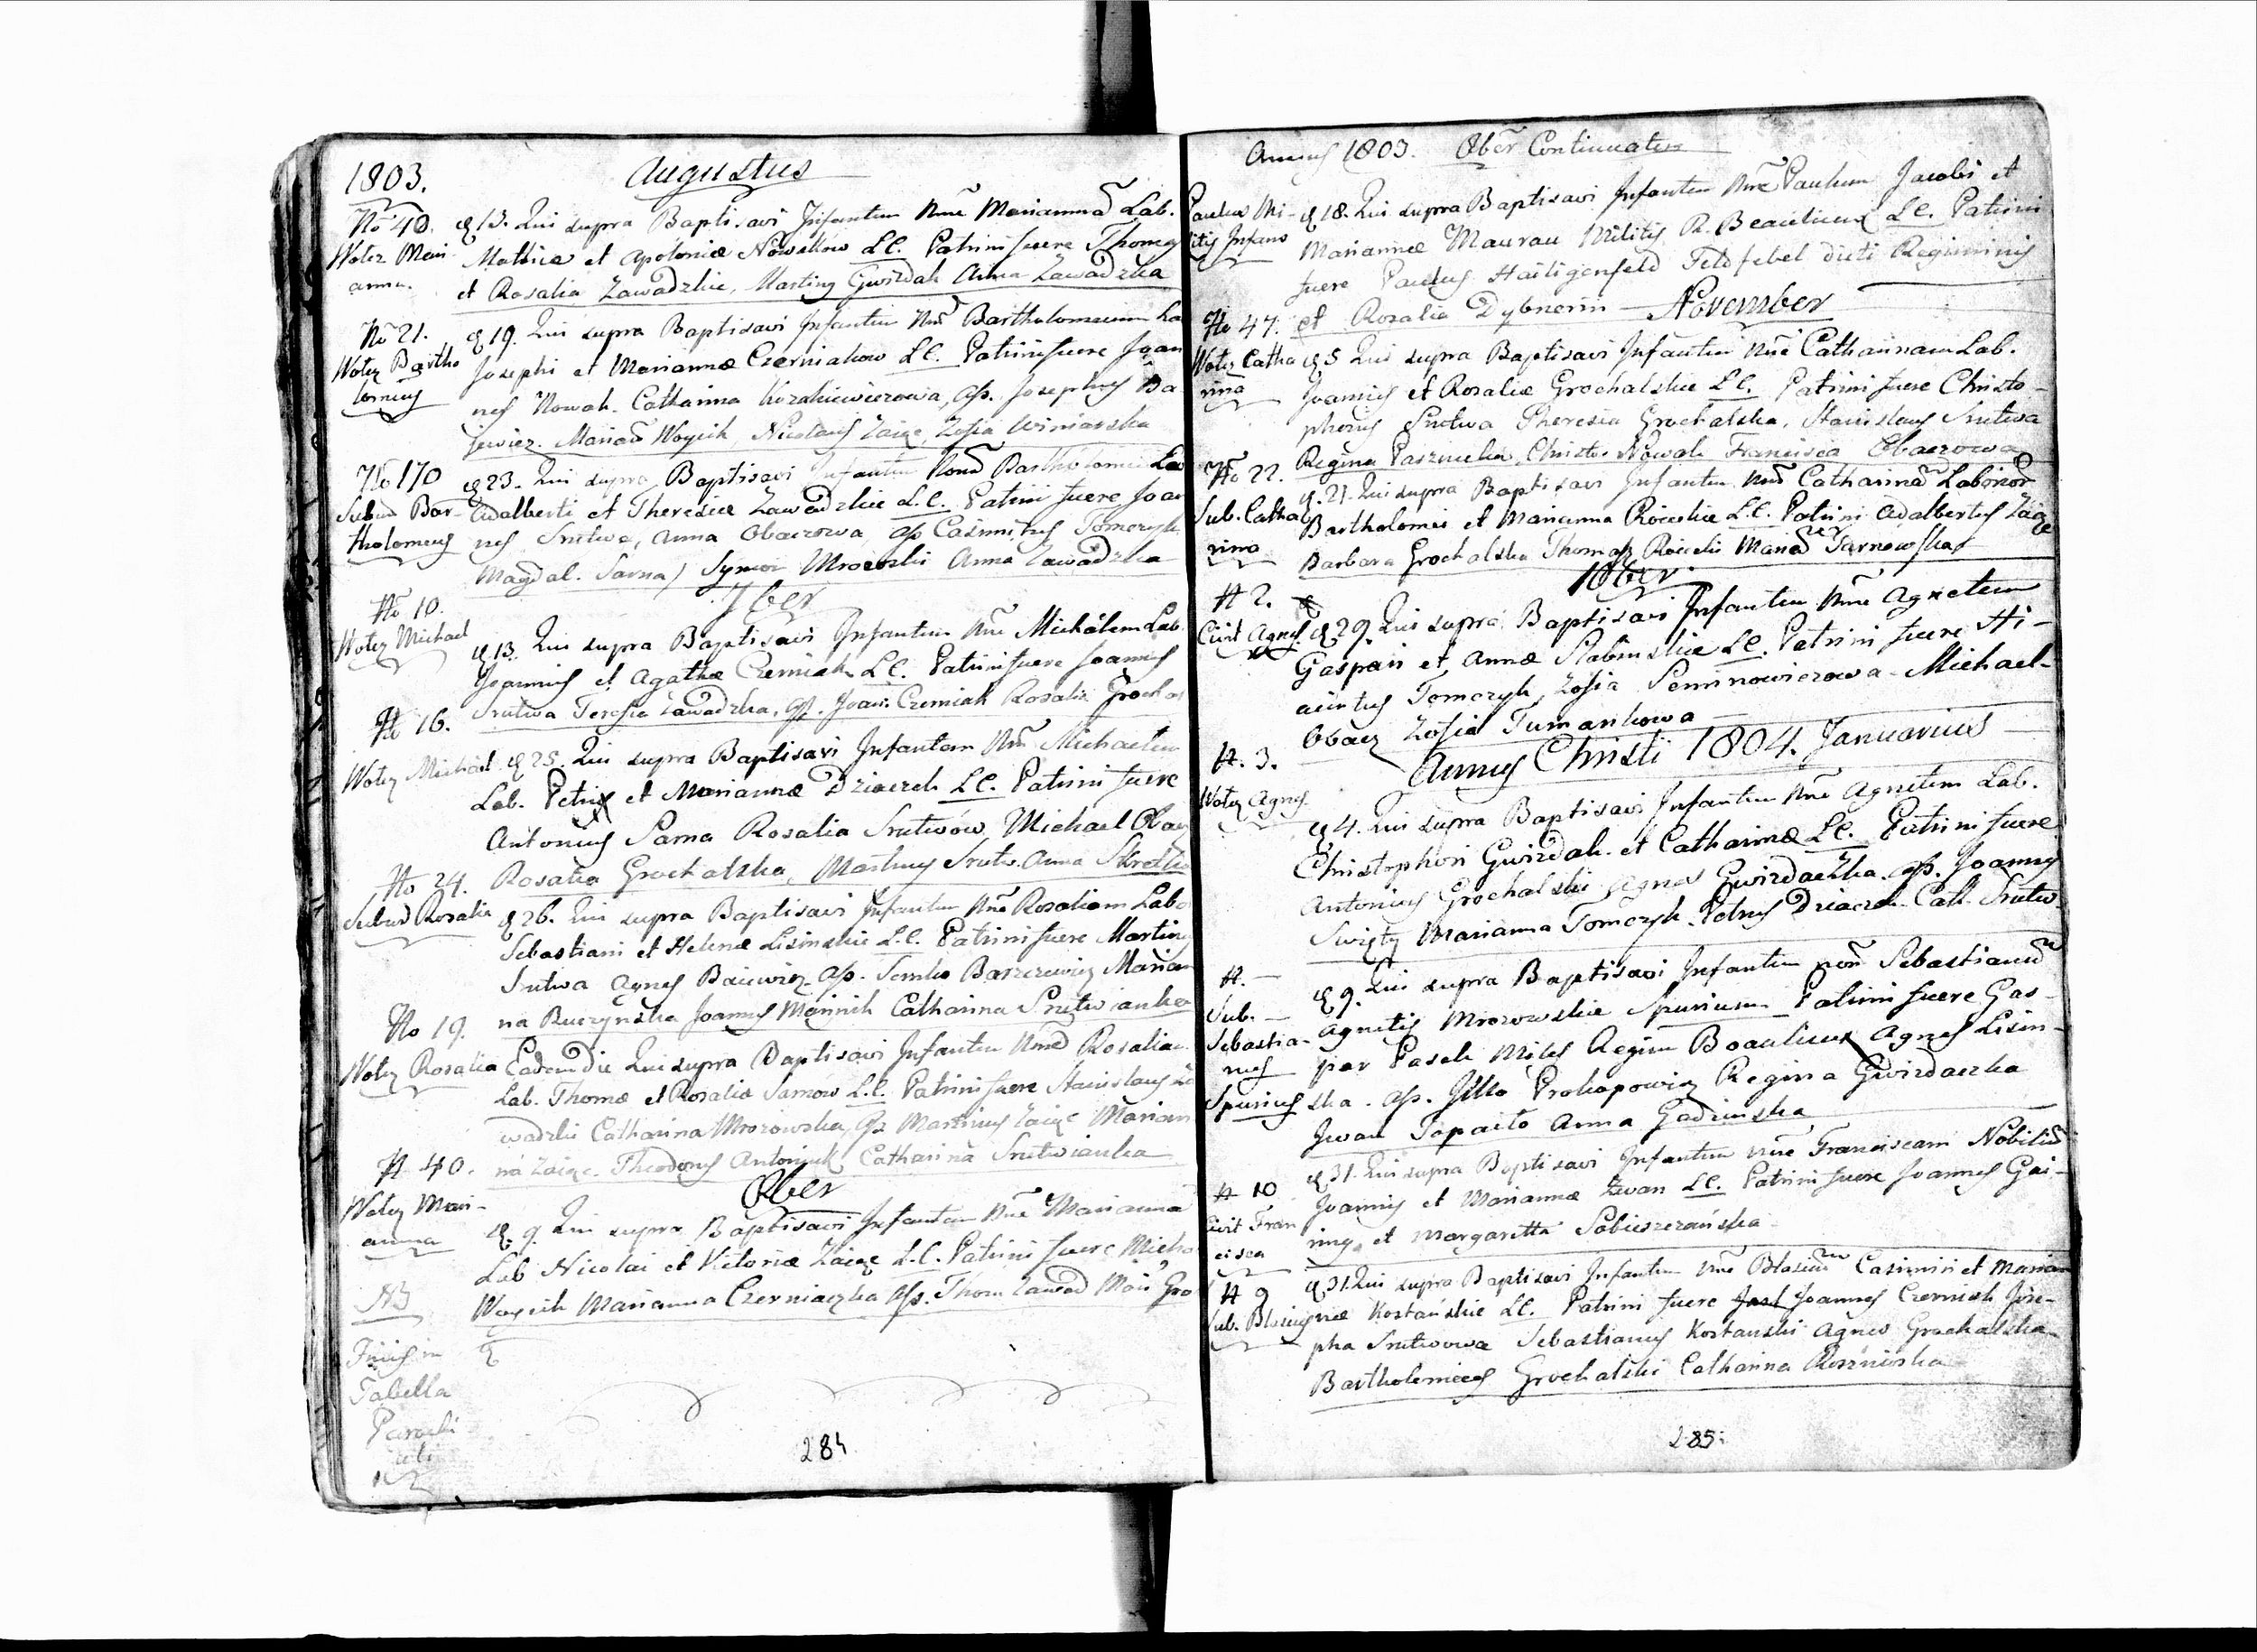 1803. Augustus
No 40. d. 13. Qui supra Baptisavi Infantem Nne Mariannã Lab.
Woley Mari- Mathiæ et Apoloniæ Nowaków L.C. Patrini fuere Thomas
anna. et Rosalia Zawadzkie, Martiny Gwizdak Anna Zawadzka
No 21. d 19. Qui supra Baptisavi Infantem Nnẽ Bartholomæum La
Woley Bartho Josephi et Mariannæ Czerniaków L.C. Patrini fuere Joan
lomeus nes Nowak. Catharina
jewicz. Mariañ Woycik, Nicolaus Zaięc, Zofia Winiarska
No 170 d 23. Qui supra Baptisavi Infantem Bartholome Lab
Subur Bar- Adalberti et Theresiæ Zawadzkie L.C. Patrini fuere Joan
tholomeus nes Srutwa, Anna Obaczowa, as. Casimirus Tomczyk
Magdal. Sarna) Symon Mrozoski Anna Zawadzka
7ber
No 10.
Woley Michael d 13. Qui supra Baptisavi Infantem Nne Michãlem Lab.
Joannis et Agathæ Czerniak L.C. Patrini fuere Joannes
Srutwa Teresia Zawadzka, as. Joan. Czerniak Rosalia Grochal
No 16.
Woley Michael d 25. Qui supra Baptisavi Infantem Nne Michaelem
Lab. Petri et Mariannæ Dziaczek L.C. Patrini fuere
Antonius Sarna Rosalia Srutwów, Michael Obacz
No 24. Rosalia Grochalska, Martinus Srutw. Anna
Subur Rosalia d 26. Qui supra Baptisavi Infantem Nne Rosaliam Lab
Sebastiani et Helenæ Lisinskie L.C. Patrini fuere Martinus
Srutwa Agnes as. Semko Marian
No 19. na Buczynska Joannes Catharina Srutwianka
Woley Rosalia Eadem Die Qui supra Baptisavi Infantem Nne Rosaliam
Lab. Thomæ et Rosaliæ Sarnów L.C. Patrini fuere Stanislaus Za
wadzki Catharina Mrozowska, as Martinus Zaięc Marian
No 40. na Zaięc. Theodorus Antoniuk Catharina Srutwianka
8ber
Woley Mari-
anna d. 9. Qui supra Baptisavi Infantem Nne Mariannã
Lab Nicolai et Victoriæ Zaięc L.C. Patrini fuere Micha
NB Woycik Marianna Czerniaczka as. Thom Zawad Mari Gro
Finis in
Tabella
Parochi
284
Annus 1803. 8ber Continuatur
Paulus Mi- d 18. Qui supra Baptisavi Infantem Nne Paulum Jacobi et
litis Infans Mariannæ Maurau Militis R. Beaulieux L.C. Patrini
fuere Paulus Hailigenfeld Feldfebel dicti Regiminis
et Rosalia Dybnerin November
No 47.
Woley Catha d 5 Qui supra Baptisavi Infantem Nne Catharinam Lab.
rina Joannis et Rosaliæ Grochalskie L.C. Patrini fuere Christo-
phorus Srutwa Theresia Grochalska, Stanislaus Srutwa
Regina Christo. Nowak Francisca Obaczowa
No 22. d. 21. Qui supra Baptisavi Infantem Nne Catharinã Laborior
Sub. Catha Bartholomei et Marianna L.C. Patrini Adalbertus Zaięc
rina Barbara Grochalska Thomas Mariañ Tarnowska
10ber
No 2.
Civit Agnes d 29. Qui supra Baptisavi Infantem Nne Agnetem
Gaspari et Annæ Slabinskie L.C. Patrini fuere Hi-
acintus Tomczyk, Zofia Michael
Obacz Zofia Tumankowa
Annus Christi 1804. Januarius
No. 3.
Woley Agnes d 4. Qui supra Baptisavi Infantem Nne Agnetem Lab.
Christophori Gwizdak et Catharinæ L.C. Patrini fuere
Antonius Grochalski Agnes Gwizdaczka. as. Joannes
Swięty Marianna Tomczyk. Petrus Dziaczek Cath. Srutw.
No. — d 9. Qui supra Baptisavi Infantem nom Sebastianũ
Sub. — Agnetis Mrozowskie Spurium Patrini fuere Gas-
Sebastia- par Pasek Miles Regim Boaulieux Agnes Lisin-
nus ska. as. Jllo Prokopowicz Regina Gwizdaczka
Spurius Jwan Topaito Anna
No 10 d 31. Qui supra Baptisavi Infantem Nne Franciscam Nobiliũ
Civit Fran Joannis et Mariannæ Zwan L.C. Patrini fuere Joannes Gai-
cisca et Margaretta Sobieszczańska
No 9 d 31. Qui supra Baptisavi Infantem Nne Blasium Casimiri et Marian
Sub. Blasius næ Kostańskie L.C. Patrini fuere Joannes Czerniak Jose-
pha Srutwowa Sebastianus Kostanski Agnes Grochalska
Bartholomeus Grochalski Catharina
285